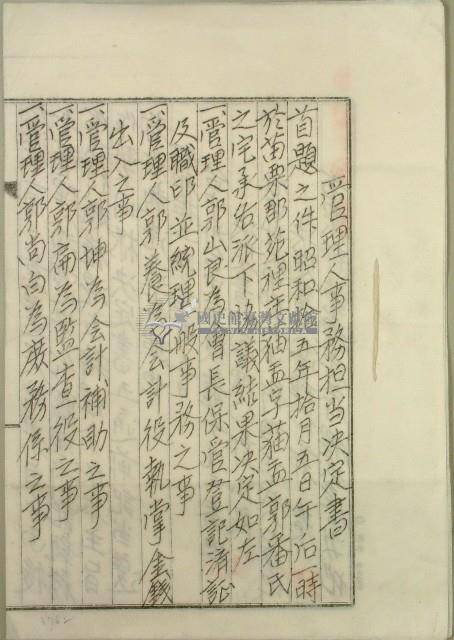 管理人事務担当決定書
首題之件昭和拾五年拾月五日午后一時
於苗栗郡苑裡庄猫盂字猫盂郭番氏
之宅承各派下協議結果決定如左
一、管理人郭山良為會長保管登記済証
及職印並統理一般事務之事
一、管理人郭養為會計役執掌金錢
出入之事
一、管理人郭坤為会計補助之事
一、管理人郭 為監查役之事
一、管理人郭尚白為庶務係之事
國史館臺灣文獻館
TAIWAN HISTORICA